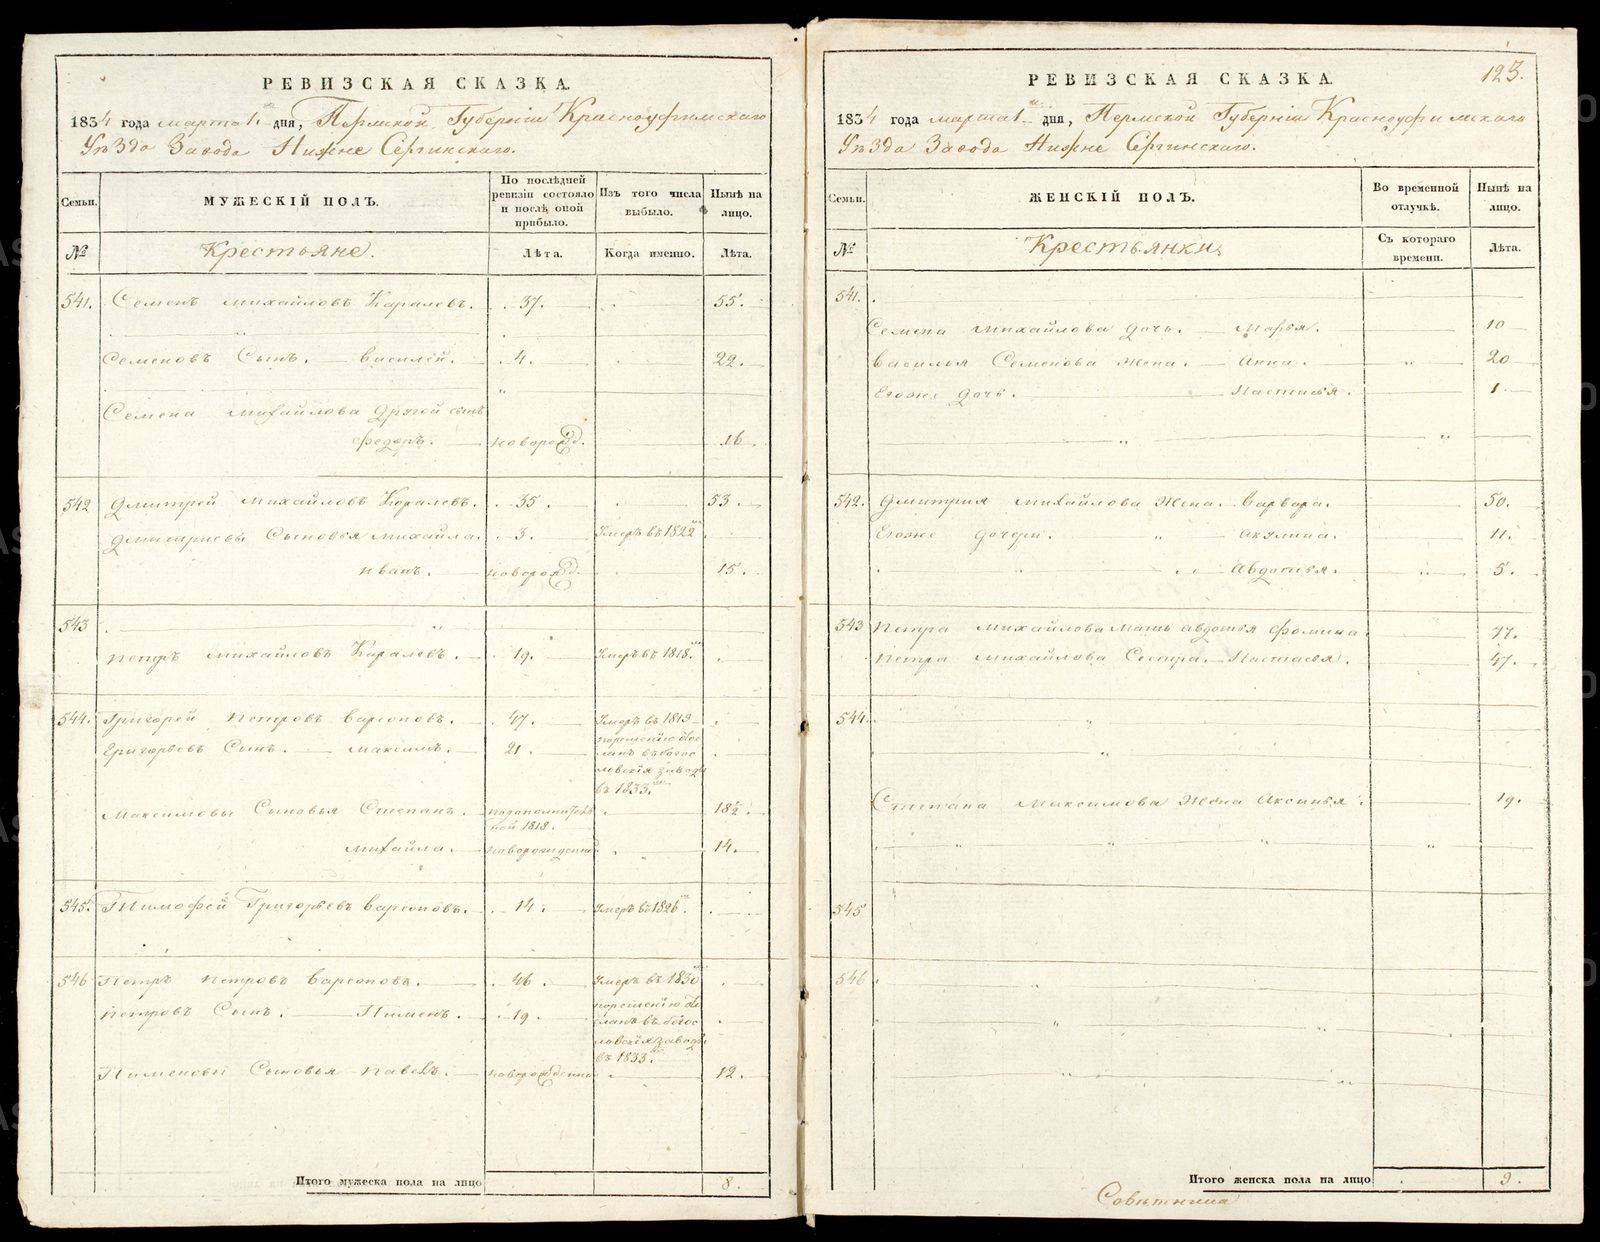 РЕВИЗСКАЯ СКАЗКА.
1834 года марта 1. дня, Пермской Губернiи Красноуфимскаго
Уѣзда Завода Нижне Сергинскаго.
Семьи.
МУЖЕСКIЙ ПОЛЪ.
По послѣдней ревизiи состояло и послѣ оной прибыло.
Изъ того числа выбыло.
Нынѣ на лицо.
№
Крестьяне.
Лѣта.
Когда именно.
Лѣта.
541. Семенъ Михайловъ Каралевъ. 37. 55.
Семеновъ Сынъ. Василей. 4. 22.
Семена Михайлова другой сынъ
Федоръ. новорожд. 16
542 Дмитрей Михайловъ Каралевъ. 35. 53.
Дмитриевы Сыновья Михайла. 3. Умеръ въ 1822
Иванъ. новорожд. 15.
543
Петръ Михайловъ Каралевъ. 19. Умеръ въ 1818.
544. Григорей Петровъ Варсоповъ. 47. Умеръ въ 1819
Григорьевъ Сынъ. Максимъ. 21.
порешению
въ богос
ловския заводы
въ 1833.
Максимовы Сыновья Степанъ. 18½.
ной 1818.
Михайла. новорожденной 14.
545. Тимофей Григорьевъ Варсоповъ. 14. Умеръ въ 1826.
546 Петръ Петровъ Варсоповъ. 46. Умеръ въ 1830
Петровъ Сынъ. Пименъ. 19. порешению
въ богос
ловския заводы
въ 1833.
Пименовы Сыновья Павелъ. 12.
Итого мужеска пола на лицо 8.
123.
РЕВИЗСКАЯ СКАЗКА.
1834 года марта 1 дня, Пермской Губернiи Красноуфимскаго
Уѣзда Завода Нижне Сергинскаго.
Семьи.
ЖЕНСКIЙ ПОЛЪ.
Во временной отлучкѣ.
Нынѣ на лицо.
№
Крестьянки
Съ котораго времени.
Лѣта.
541.
Семена Михайлова дочь. Марья. 10
Василья Семенова жена. Анна. 20
Егоже дочь. Настасья. 1
542. Дмитрия Михайлова Жена. Варвара. 50.
Егоже дочери. Акулина. 11.
Авдотья. 5.
543 Петра Михайлова мать Авдотья Фомина 77.
Петра Михайлова Сестра. Настасья. 47.
544.
Степана Максимова Жена Аксинья. 19.
545
546
Итого женска пола на лицо 9.